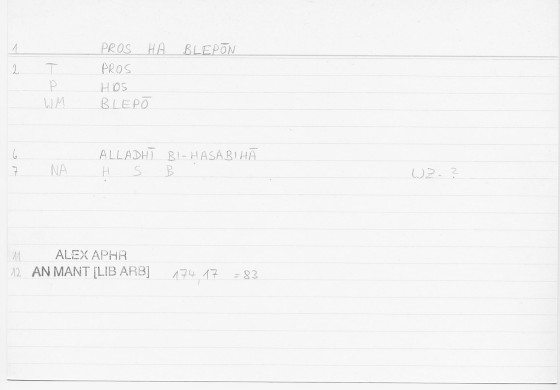 1 PROS HA BLEPŌN
2 T PROS
P HOS
WM BLEPŌ
6 ALLADHĪ BI-ḤASABIHĀ
7 NA Ḥ S B WZ-?
11 ALEX APHR
12 AN MANT [LIB ARB] 174,17 =83